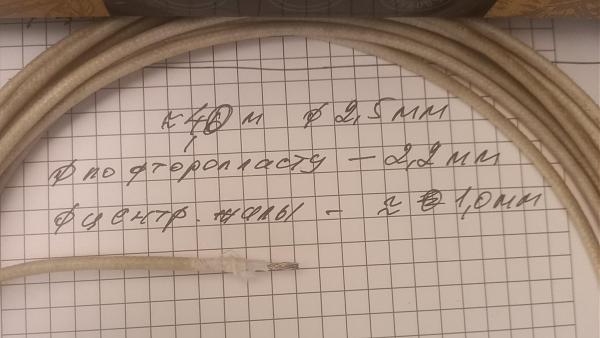 ≈ 40 м ф 2,5 мм
ф по фторопласту – 2,2 мм
ф центр. жилы – ≈ 1,0 мм